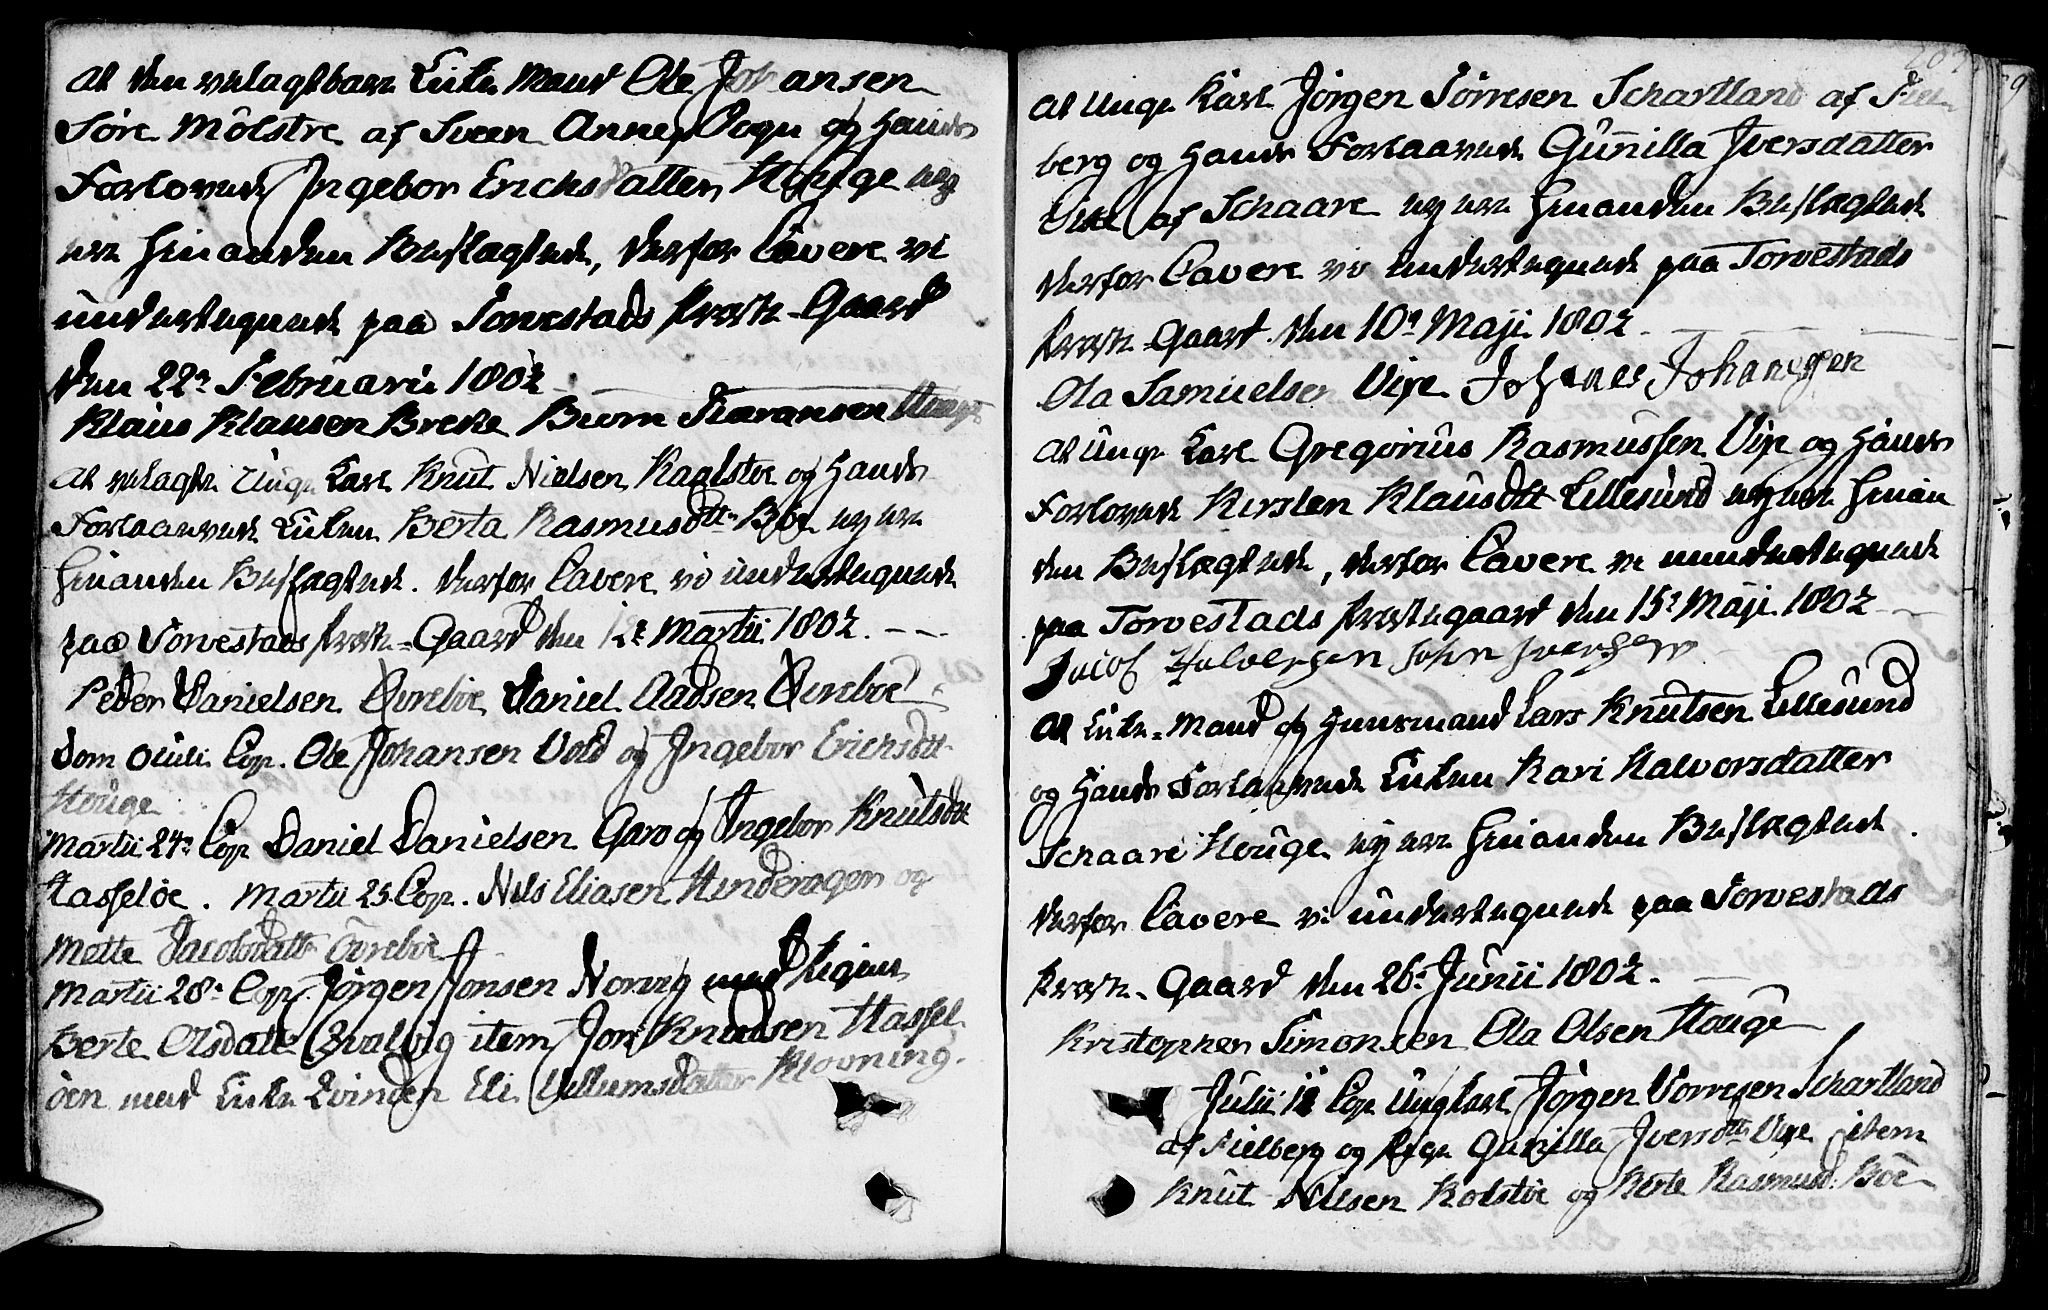 At den velagtbare Enke Mand Ole Johansen
Søre Mölstre af Sveen Annex Sogn og Hands
Forlovede Ingebor Erichsdatter Houge ney
ere hinanden Beslægtede, derfor Cavere vi
underteguede paa Torvestads Præste-Gaard
den 22de Februarii 1802
Klaus Klausen Breke Biørn Siøransen Houge
At velagte Unge Karl Knut Nielsen Kaalstøe og Hands
Forlaavede Enken Berta Rasmusdtt Böe ey ere
hinanden Beslægtede. derfor Cavere vi underteguede
paa Torvestads Præste-Gaard den 12te Martii 1802.
Peder Danielsen Øvreböe Daniel Aadsen Øvreboe
Dom Oculi Cop. Ole Johansen Vold og Ingebor Erichsdtt
Houge
Martii 24de Cop Daniel Danielsen Garo og Ingebor Knutsdtt
Hasseløe. Martii 25 Cop. Nils Eliasen Hinderagen og
Mette Jacobsdatt Övreböe
Martii 28de Cop. Jörgen Jonsen Norvig med Pigen
Berte Olsdatt Qvalvig item Jon Knudsen Hassel
öen med Enke Qvinden Eli Villumsdatter Klovning.
At Unge Karl Jörgen Törresen Schartland af Skiel
berg og Hands Forlaavede Gunilla Iversdatter
Vixe af Schaare ey ere hinanden Beslægtede
derfor Cavere vi underteguede paa Torvestads
Præste-Gaard den 10de Maji 1802
Ola Samuelsen Vixe Johanes Johansen
At Unge Karl Gregorius Rasmussen Vixe og Hands
Forlovede Kirsten Klausdtt Lillesund ey ere hinan
den Beslægtede, derfor Cavere vi underteguede
paa Torvestads Præstegaard den 15de Maji 1802
Jacob Halversen John Iversen
At Enke-Mand og Huusmand Lars Knutsen Lillesund
og Hands Forlaavede Enken Kari Halvorsdatter
Schaare Houge ey ere hinanden Beslægtede
derfor Cavere vi underteguede paa Torvestads
Præste-Gaard den 26de Junii 1802.
Kristopher Simonsen Ola Olsen Houge
Julii 11 Cop Ung karl Jörgen Törresen Schartland
af Skielberg og Pige Gunilla Iversdtt Vixe item
Knut Nilsen Kolstöe og Berte Rasmusd: Böe